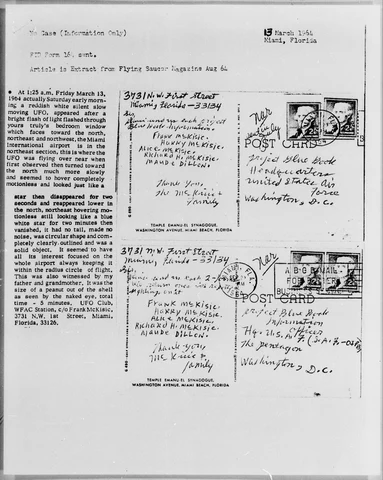 No Case (Information Only)
13 March 1964
Miami, Florida
FTD Form 164 sent.
Article is Extract from Flying Saucer Magazine Aug 64
At 1:25 a.m. Friday March 13,
1964 actually Saturday early morn-
ing a reddish white silent slow
moving UFO, appeared after a
bright flash of light flashed through
yours truly's bedroom window
which faces toward the north,
northeast and northwest, the Miami
international airport is in the
northeast section, this is where the
UFO was flying over near when
first observed then turned toward
the north much more slowly
and seemed to hover completely
motionless and looked just like a
star then disappeared for two
seconds and reappeared lower in
the north, northeast hovering mo-
tionless still looking like a blue
white star for two minutes then
vanished, it had no tail, made no
noise, was circular shape and com-
pletely clearly outlined and was a
solid object. It seemed to have
all its interest focused on the
whole airport always keeping it
within the radius circle of flight.
This was also witnessed by my
father and grandmother. It was the
size of a peanut out of the shell
as seen by the naked eye, total
time - 5 minutes. UFO Club,
WFAC Station, c/o Frank McKisic,
3731 N.W. 1st Street, Miami,
Florida, 33126.
3731 N.W. First Street
Miami, Florida - 33134
Please send me each project
Blue Book Information.
Frank McKisic
Harry McKisic
Alice McKisic
Richard H. McKisic
Maude Dillon.
Thank you,
The McKisic
Family
TEMPLE EMANU-EL SYNAGOGUE,
WASHINGTON AVENUE, MIAMI BEACH, FLORIDA
POST CARD
Project Blue Book
Headquarters
United States Air
Force
Washington, D.C.
3731 N.W. First Street
Miami, Florida - 33134
Frank McKisic
Harry McKisic
Alice McKisic
Richard H. McKisic
Maude Dillon.
Thank you,
McKisic
Family
TEMPLE EMANU-EL SYNAGOGUE,
WASHINGTON AVENUE, MIAMI BEACH, FLORIDA
POST CARD
Project Blue Book
Information
Officer
The Pentagon
Washington, D.C.